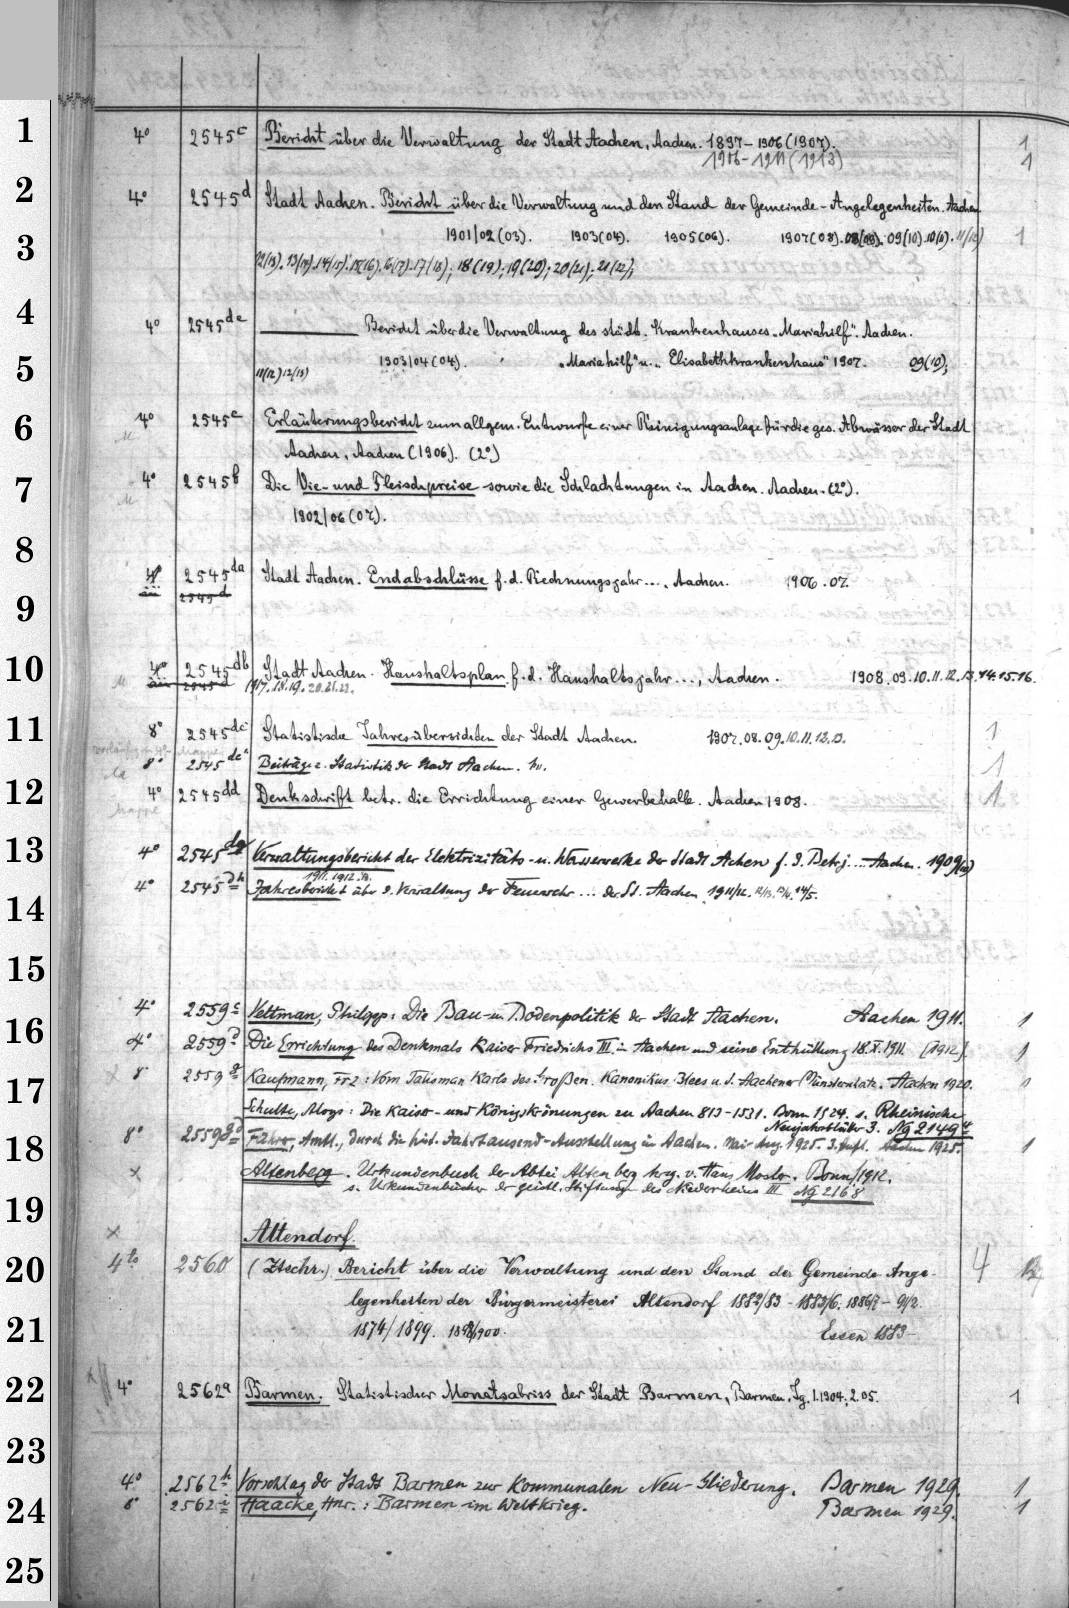 1
4° 2545c Bericht über die Verwaltung der Stadt Aachen, Aachen. 1897-1906 (1907). 1
1906-1911 (1913) 1
2
4° 2545d Stadt Aachen. Bericht über die Verwaltung und den Stand der Gemeinde-Angelegenheiten. Aachen
3
1901/02 (03). 1903 (04). 1905 (06). 1907 (08). 08(09). 09(10) 10(11). 11(12) 1
12(13). 13(14). 14(15). 15(16). 16(17). 17(18); 18(19); 19(20); 20(21); 21(22);
4
4° 2545de Bericht über die Verwaltung des städt. Krankenhauses „Mariahilf". Aachen.
5
1903/04 (04). „Mariahilf" u. „Elisabethkrankenhaus" 1907. 09(10);
11(12) 12(13)
6
4° 2545e Erläuterungsbericht zum allgem. Entwurfe einer Reinigungsanlage für die ges. Abwässer der Stadt
Aachen, Aachen (1906). (2°)
7
4° 2545b Die Vie- und Fleischpreise sowie die Schlachtungen in Aachen. Aachen. (2°).
1902/06 (07).
8
4° 2545da Stadt Aachen. Endabschlüsse f. d. Rechnungsjahr..., Aachen. 1906. 07.
2545d
9
10
4° 2545db Stadt Aachen. Haushaltsplan f. d. Haushaltsjahr..., Aachen. 1908. 09. 10. 11. 12. 13. 14. 15. 16.
2545d 1917. 18. 19. 20. 21. 22.
11
8° 2545dc Statistische Jahresübersichten der Stadt Aachen. 1907. 08. 09. 10. 11. 12. 13. 1
8° 2545 Beiträge z. Statistik der Stadt Aachen. 1
12
4° 2545dd Denkschrift betr. die Errichtung einer Gewerbehalle. Aachen 1908. 1
Mappe
13
4° 2545dg Verwaltungsbericht der Elektrizitäts- u. Wasserwerke der Stadt Achen f. d. Betrj... Aachen. 1909(10)
1911. 1912. 13.
4° 2545dh Jahresbericht über d. Verwaltung der Feuerwehr ... der St. Aachen 1911/12. 12/13. 13/14. 14/15.
14
15
4° 2559c Vettman, Philipp: Die Bau- u. Bodenpolitik der Stadt Aachen. Aachen 1911. 1
16
4° 2559d Die Errichtung des Denkmals Kaiser Friedrichs III. in Aachen und seine Enthüllung 18.X.1911. [1912]. 1
17
8° 2559g Kaufmann, Frz: Vom Talisman Karls des Großen. Kanonikus Blees u. d. Aachener Münsterschatz. Aachen 1920. 1
Schulte, Aloys: Die Kaiser- und Königskrönungen zu Aachen 813-1531. Bonn 1924. s. Rheinische
Neujahrsblätter 3. Ng 2149
18
8° 2559gd Führer, Amtl., durch die hist. Jahrtausend-Ausstellung in Aachen. Mai-Aug. 1925. 3. Aufl. Aachen 1925. 1
Altenberg. Urkundenbuch der Abtei Altenberg hrsg. v. Hans Mosler. Bonn 1912.
s. Urkundenbücher der geistl. Stiftungen des Niederrheins III Ng 2168
19
Altendorf.
20
4to 2560 (Ztschr.) Bericht über die Verwaltung und den Stand der Gemeinde-Ange- 4
legenheiten der Bürgermeisterei Altendorf 1882/83 - 1885/6. 1886/7 - 91/2.
21
1874/1899. 1898/900. Essen 1883-
22
4° 2562a Barmen. Statistischer Monatsabriss der Stadt Barmen, Barmen. Jg. 1. 1904; 2. 05. 1
23
4° 2562h Vorschlag der Stadt Barmen zur kommunalen Neu-Gliederung. Barmen 1929. 1
24
8° 2562i Haacke, Hnr.: Barmen im Weltkrieg. Barmen 1929. 1
25